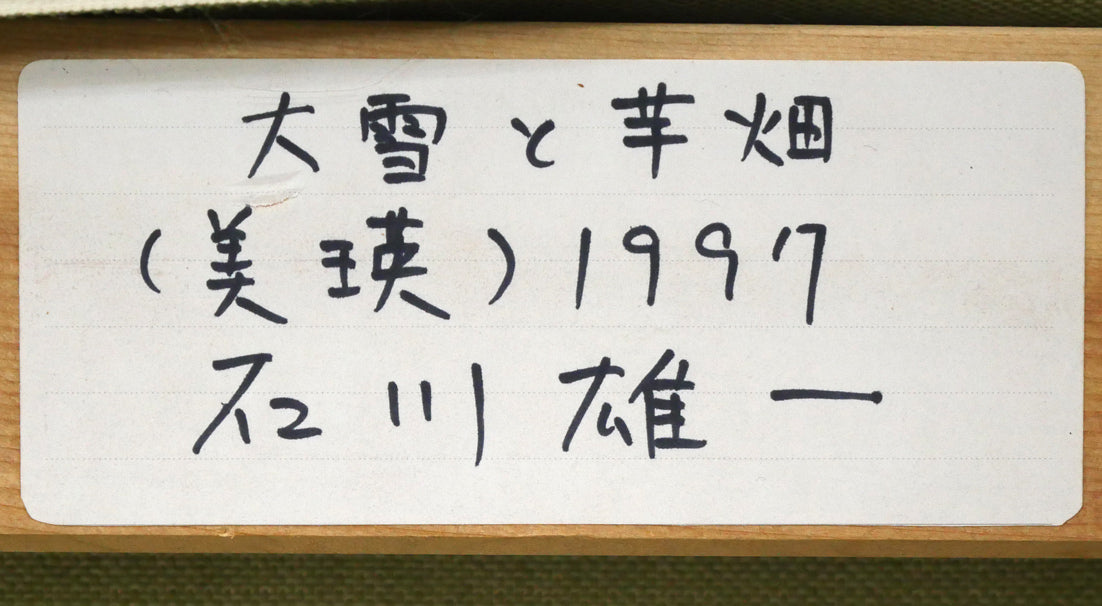 大雪と芋畑
(美瑛)1997
石川雄一